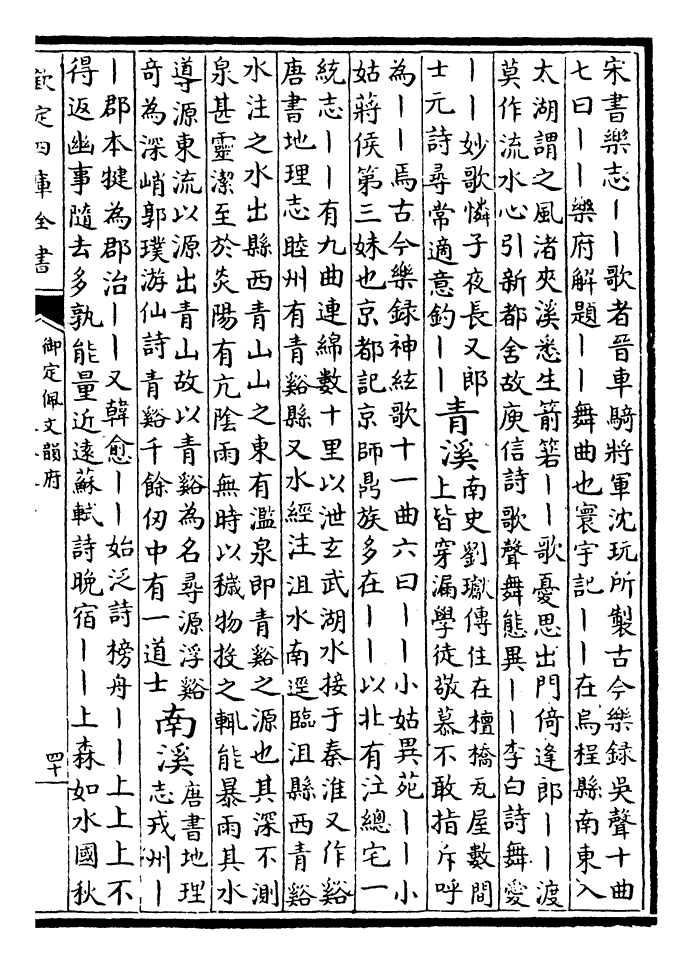 宋書樂志丨丨歌者晉車騎將軍沈玩所製古今樂録吳聲十曲
七曰丨丨樂府解題丨丨舞曲也寰宇記丨丨在烏程縣南東入
太湖謂之風渚夾溪悉生箭箬丨丨歌憂思出門倚逢郎丨丨渡
莫作流水心引新都舍故庾信詩歌聲舞態異丨丨李白詩舞愛
丨丨妙歌憐子夜長又郎
士元詩尋常適意釣丨丨
青溪
南史劉瓛傳住在檀橋瓦屋數間
上皆穿漏學徒敬慕不敢指斥呼
為丨丨焉古今樂録神絃歌十一曲六曰丨丨小姑異苑丨丨小
姑蔣侯第三妹也京都記京師鼎族多在丨丨以北有注總宅一
統志丨丨有九曲連綿數十里以泄玄武湖水接于秦淮又作谿
唐書地理志睦州有青谿縣又水經注沮水南逕臨沮縣西青谿
水注之水出縣西青山山之東有濫泉即青谿之源也其深不測
泉甚靈潔至於炎陽有亢陰雨無時以穢物投之輒能暴雨其水
導源東流以源出青山故以青谿為名尋源浮谿
奇為深峭郭璞游仙詩青谿千餘仞中有一道士
南溪
唐書地理
志戎州丨
丨郡本犍為郡治丨丨又韓愈丨丨始泛詩榜舟丨丨上上上不
得返幽事隨去多孰能量近遠蘇軾詩晚宿丨丨上森如水國秋
欽定四庫全書
御定佩文韻府
四十